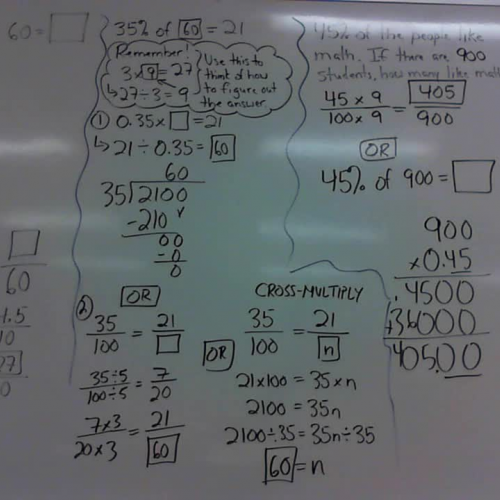 60 = □
35% of 60 = 21
Remember!
3 × 9 = 27
↳ 27 ÷ 3 = 9
Use this to
think of how
to figure out
the answer.
① 0.35 × □ = 21
↳ 21 ÷ 0.35 = 60
60
35)2100
-210
00
-0
0
② OR
35/100 = 21/□
35÷5/100÷5 = 7/20
7×3/20×3 = 21/60
OR
CROSS-MULTIPLY
35/100 = 21/n
21×100 = 35×n
2100 = 35n
2100÷35 = 35n÷35
60 = n
45% of the people like
math. If there are 900
students, how many like math
45 × 9/100 × 9 = 405/900
OR
45% of 900 = □
900
×0.45
4500
36000
405.00
□
60